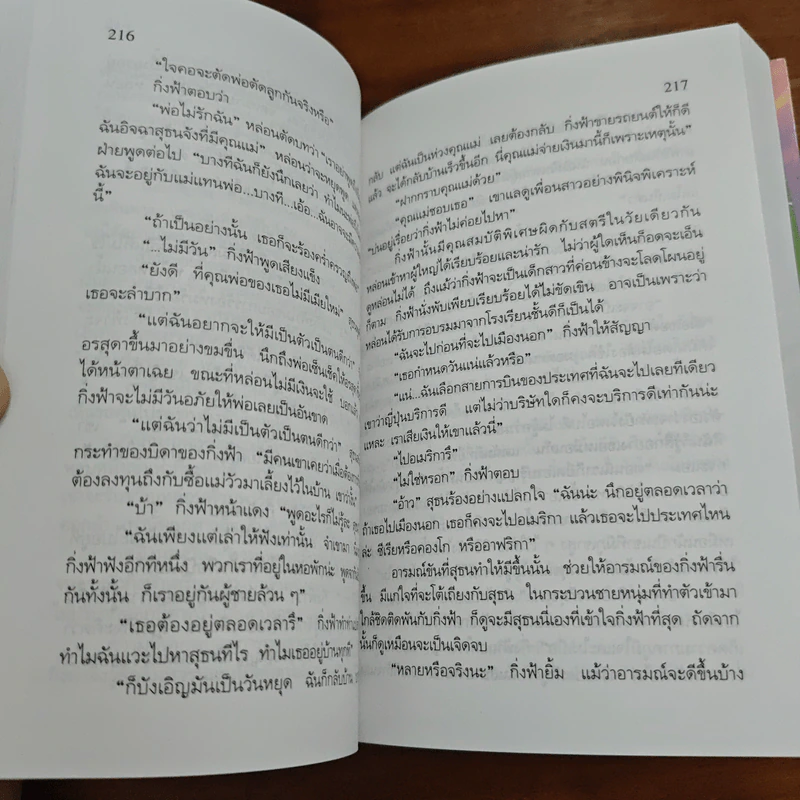 216
“ใจคอจะตัดพ่อตัดลูกกันจริงหรือ”
กิ่งฟ้าตอบว่า
“พ่อไม่รักฉัน” หล่อนตัดบทว่า
ฉันอิจฉาสุธนจังที่มีคุณแม่” หล่อนว่าจะหยุดพูด
ฝ่ายพูดต่อไป “บางทีฉันก็ยังนึกเลยว่า
ฉันจะอยู่กับแม่แทนพ่อ...บางที...เอ้อ...ฉันอาจจะ
นี้”
“ถ้าเป็นอย่างนั้น เธอก็จะร้องคร่ำครวญ
“...ไม่มีวัน” กิ่งฟ้าพูดเสียงแข็ง
“ยังดี ที่คุณพ่อของเธอไม่มีเมียใหม่”
เธอจะลำบาก”
“แต่ฉันอยากจะให้มีเป็นตัวเป็นตนดีกว่า”
อรสุดาขึ้นมาอย่างขมขื่น นึกถึงพ่อเซ็นเช็คให้
ได้หน้าตาเฉย ขณะที่หล่อนไม่มีเงินจะใช้
กิ่งฟ้าจะไม่มีวันอภัยให้พ่อเลยเป็นอันขาด
“แต่ฉันว่าไม่มีเป็นตัวเป็นตนดีกว่า”
กระทำของบิดาของกิ่งฟ้า “มีคนเขาเคยว่าเมื่อ
ต้องลงทุนถึงกับซื้อแม่วัวมาเลี้ยงไว้ในบ้าน
“บ้า” กิ่งฟ้าหน้าแดง “พูดอะไรก็ไม่รู้
“ฉันเพียงแต่เล่าให้ฟังเท่านั้น จำเขามา
กิ่งฟ้าฟังอีกทีหนึ่ง พวกเราที่อยู่ในหอพักน่ะ
กันทั้งนั้น ก็เราอยู่กันผู้ชายล้วน ๆ”
“เธอต้องอยู่ตลอดเวลารึ”
ทำไมฉันแวะไปหาสุธนทีไร ทำไมเธออยู่บ้านทุกที”
“ก็บังเอิญมันเป็นวันหยุด ฉันก็กลับบ้าน
217
กลับ แต่ฉันเป็นห่วงคุณแม่ เลยต้องกลับ กิ่งฟ้าขายรถยนต์ให้ก็ดี
แล้ว จะได้กลับบ้านเร็วขึ้นอีก นี่คุณแม่จ่ายเงินมานี้ก็เพราะเหตุนั้น”
“ฝากกราบคุณแม่ด้วย”
“คุณแม่ชอบเธอ” เขาแลดูเพื่อนสาวอย่างพินิจพิเคราะห์
“บ่นอยู่เรื่อยว่ากิ่งฟ้าไม่ค่อยไปหา”
กิ่งฟ้านั้นมีคุณสมบัติพิเศษผิดกับสตรีในวัยเดียวกัน
หล่อนเข้าหาผู้ใหญ่ได้เรียบร้อยและน่ารัก ไม่ว่าผู้ใดเห็นก็อดจะเอ็น
ดูหล่อนไม่ได้ ถึงแม้ว่ากิ่งฟ้าจะเป็นเด็กสาวที่ค่อนข้างจะโลดโผนอยู่
ก็ตาม กิ่งฟ้านั่งพับเพียบเรียบร้อยได้ไม่ขัดเขิน อาจเป็นเพราะว่า
หล่อนได้รับการอบรมมาจากโรงเรียนชั้นดีก็เป็นได้
“ฉันจะไปก่อนที่จะไปเมืองนอก” กิ่งฟ้าให้สัญญา
“เธอกำหนดวันแน่แล้วหรือ”
“แน่...ฉันเลือกสายการบินของประเทศที่ฉันจะไปเลยทีเดียว
เขาว่าญี่ปุ่นบริการดี แต่ไม่ว่าบริษัทใดก็คงจะบริการดีเท่ากันน่ะ
แหละ เราเสียเงินให้เขาแล้วนี่”
“ไปอเมริการึ”
“ไม่ใช่หรอก” กิ่งฟ้าตอบ
“อ้าว” สุธนร้องอย่างแปลกใจ “ฉันน่ะ นึกอยู่ตลอดเวลาว่า
ถ้าเธอไปเมืองนอก เธอก็คงจะไปอเมริกา แล้วเธอจะไปประเทศไหน
ล่ะ ซีเรียหรือคองโก หรืออาฟริกา”
อารมณ์ขันที่สุธนทำให้มีขึ้นนั้น ช่วยให้อารมณ์ของกิ่งฟ้ารื่น
ขึ้น มีแก่ใจที่จะโต้เถียงกับสุธน ในกระบวนชายหนุ่มที่ทำตัวเข้ามา
ใกล้ชิดติดพันกับกิ่งฟ้า ก็ดูจะมีสุธนนี่เองที่เข้าใจกิ่งฟ้าที่สุด ถัดจาก
นั้นก็ดูเหมือนจะเป็นเจิดจบ
“หลายหรือจริงนะ” กิ่งฟ้ายิ้ม แม้ว่าอารมณ์จะดีขึ้นบ้าง